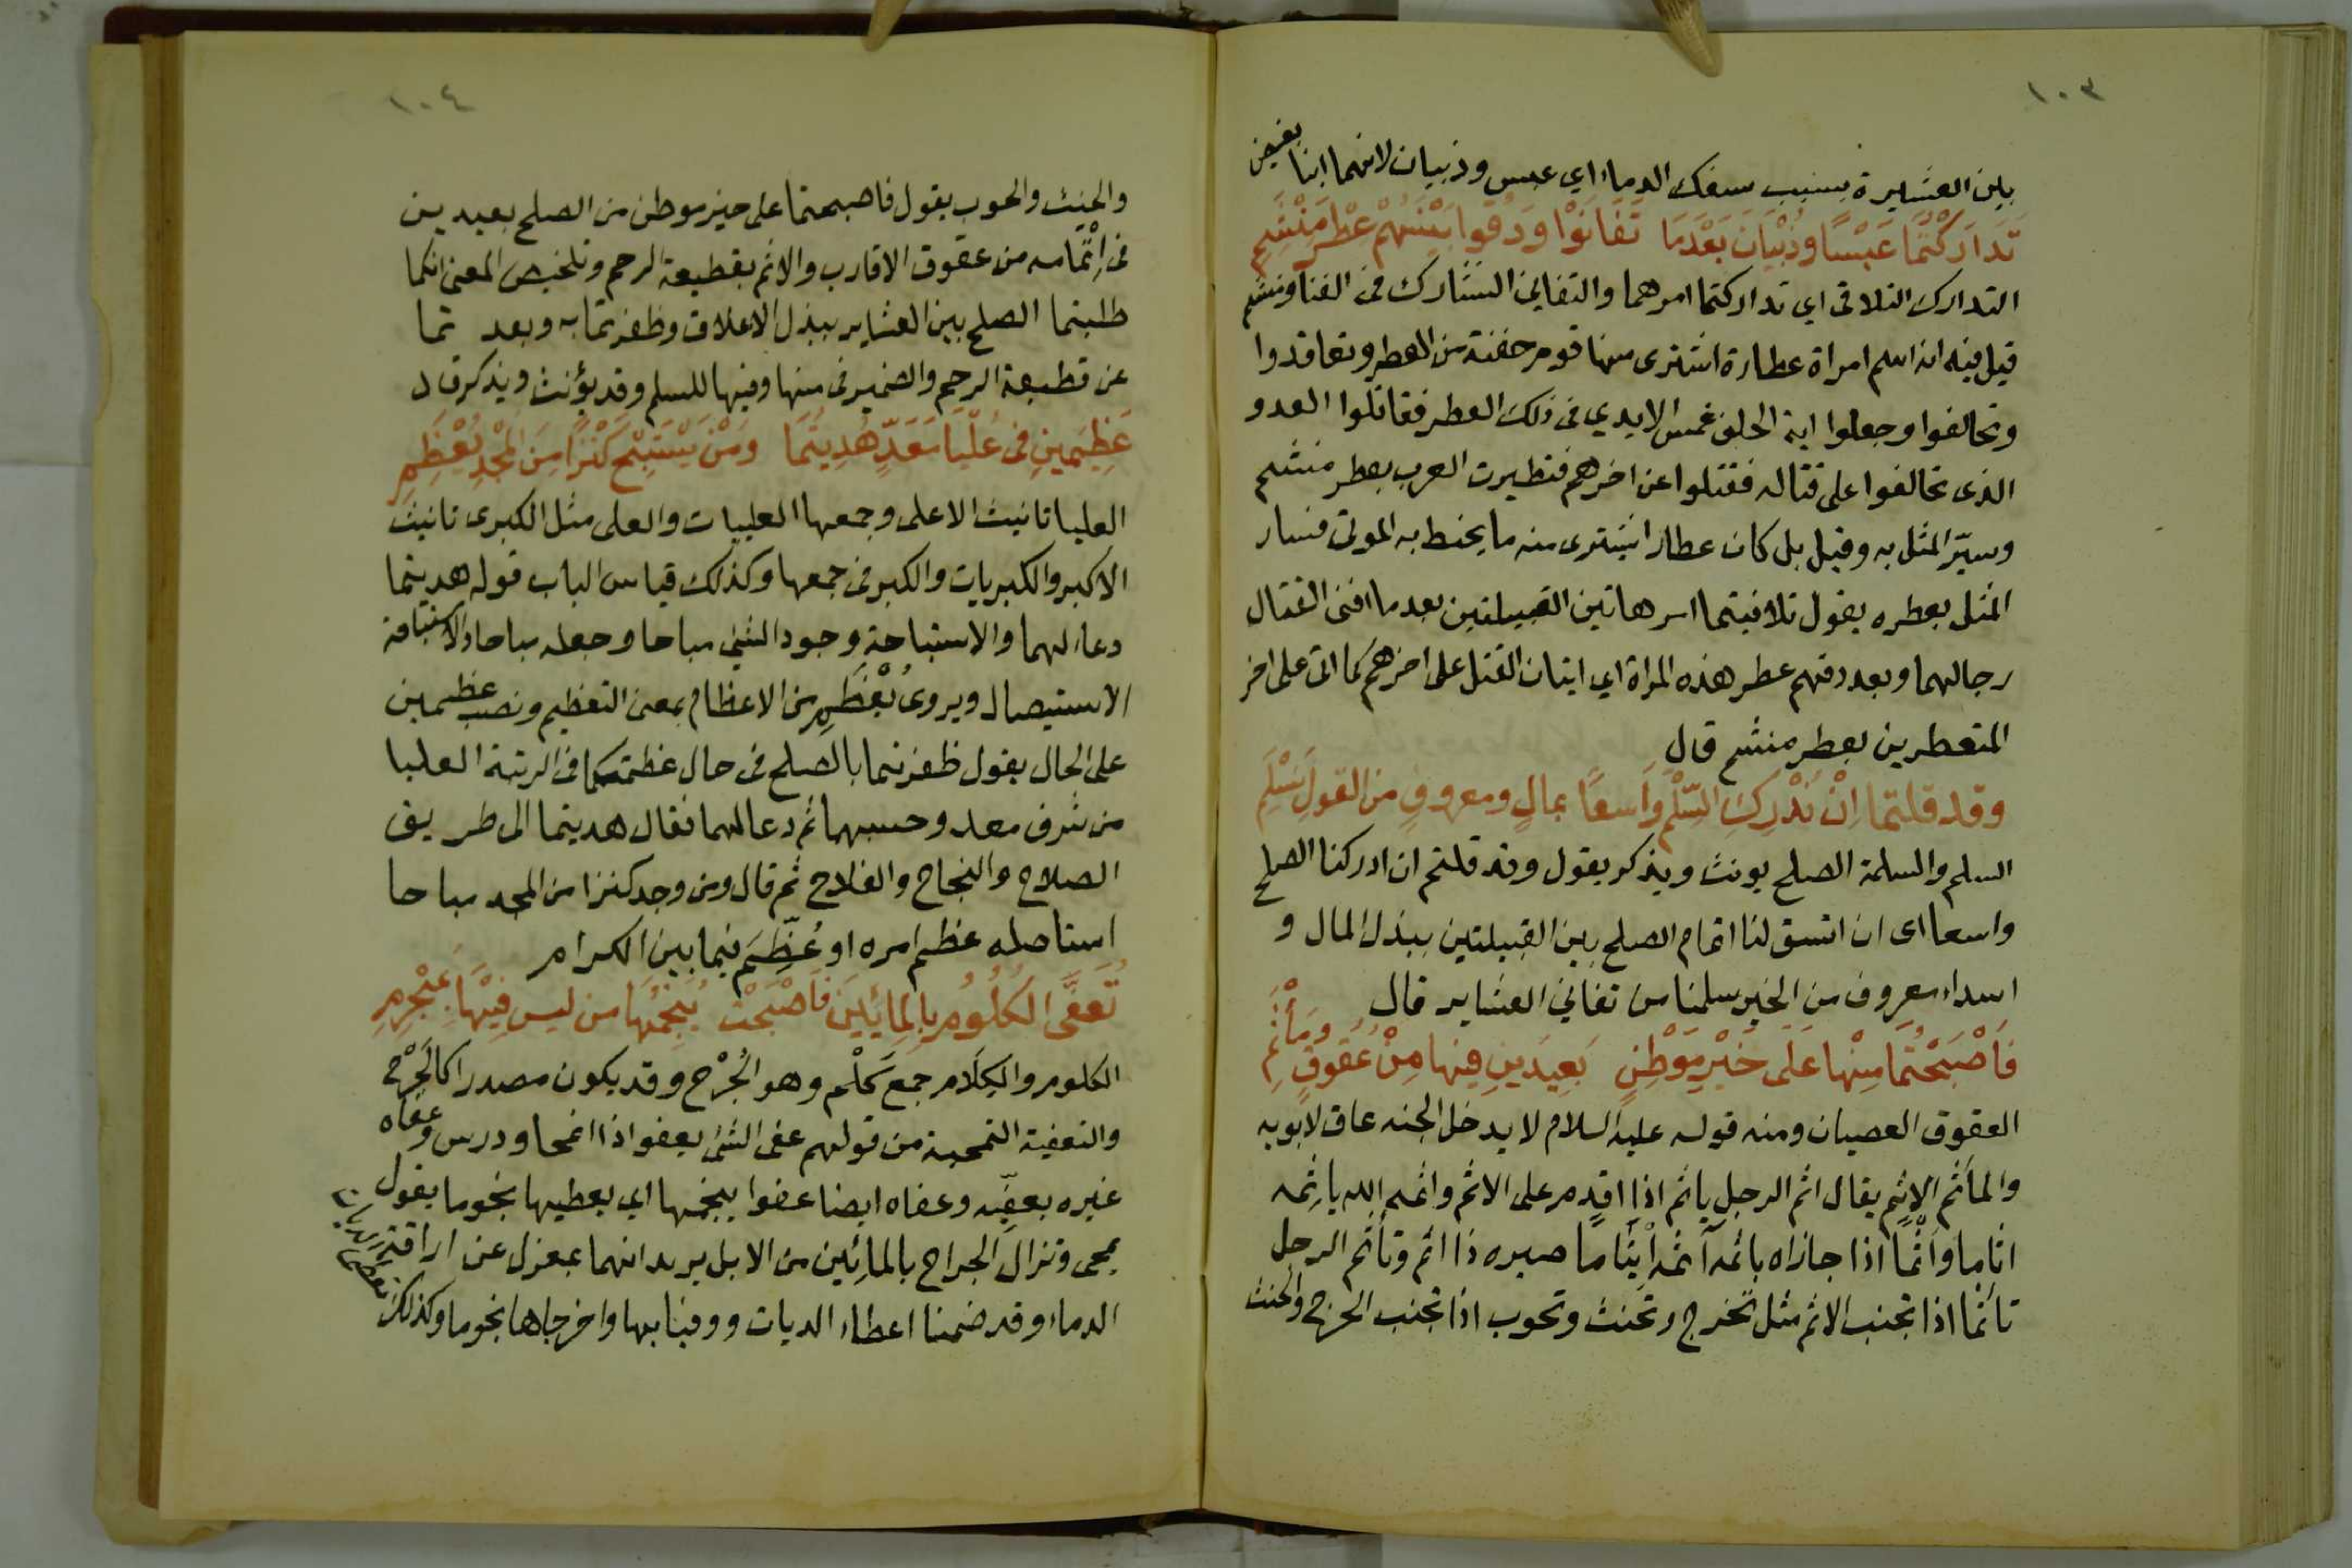 ١٠٣
بين العشيرة بسبب سفك الدماء اي عبس وذبيان لانهما ابنا بغيض
تَدَارَكْتُمَا عَبْسًا وذُبْيَانَ بَعْدَمَا تَفَانَوْا وَدَقُّوا بَيْنَهُمْ عِطْرَ مَنْشَمِ
التدارك التلافى اي تداركتما امرهما والتفانى التشارك فى الفنا ومنشم
قيل فيه انه اسم امراة عطارة اشترى منها قوم حفنة من العطر وتعاقدوا
وتحالفوا وجعلوا اية الحلف غمس الايدي فى ذلك العطر فقاتلوا العدو
الذى تحالفوا على قتاله فقتلوا عن اخرهم فتطيرت العرب بعطر منشم
وسيّر المثل به وقيل بل كان عطارا يشترى منه ما يحنط به الموتى فسار
المثل بعطره يقول تلافيتما امر هاتين القبيلتين بعدما افنى القتال
رجالهما وبعد دقهم عطر هذه المراة اي اتيان القتل على اخرهم كما اتى على اخر
المتعطرين بعطر منشم قال
وقد قلتما اِنْ نُدْرِكِ السِّلْمَ وَاسعًا بمالٍ ومعروفٍ من القولِ نَسْلَمِ
السلم والسلمة الصلح يونث ويذكر يقول وقد قلتم ان ادركنا الصلح
واسعا اى ان اتسق لنا اتمام الصلح بين القبيلتين ببذل المال و
اسداء معروف من الخير سلمنا من تفانى العشاير قال
فَاَصْبَحْتُمَا مِنْها عَلَى خَيْرِ مَوْطِنٍ بَعِيدَينِ فِيها مِنْ عُقُوقٍ وَمَأْثَمِ
العقوق العصيان ومنه قوله عليه السلام لا يدخل الجنه عاق لابويه
والمأثم الاثم يقال اثم الرجل ياثم اذا اقدم على الاثم واثمه الله ياثِمه
اثاما واَثْمًا اذا جازاه باثمه آثمه اِيثَاما صيره ذا اثم وتأثم الرجل
تأثما اذا تجنب الاثم مثل تحرج وتحنث وتحوب اذا تجنب الحرج والحنث
١٠٤
والحنث والحوب يقول فاصبحتما على خير موطن من الصلح بعيدين
فى اِتْمامه من عقوق الاقارب والاثم بقطيعة الرحم وتلخيص المعنى انكما
طلبتما الصلح بين العشاير ببذل الاعلاق وظفرتما به وبعد تما
عن قطيعة الرحم والضمير فى منها وفيها للسلم وقد يؤنث ويذكر قال
عَظِيمَينِ فى عُلْيَا مَعَدٍّ هُدِيتُمَا وَمَنْ يَسْتَبِحْ كَنْزًا مِنَ المَجْدِ يُعْظَمِ
العليا تانيث الاعلى وجمعها العلييات والعلى مثل الكبرى تانيث
الاكبر والكبريات والكبر فى جمعها وكذلك قياس الباب قوله هديتما
دعاء لهما والاستباحة وجود الشئ مباحا وجعله مباحا والاستباحة
الاستيصال ويروى يُعْظَمِ من الاعظام بمعنى التعظيم ونصب عظيمين
على الحال يقول ظفرتما بالصلح فى حال عظمتكما فى الرتبة العليا
من شرف معد وحسبها ثم دعا لهما فقال هديتما الى طريق
الصلاح والنجاح والفلاح ثم قال ومن وجد كنزا من المجد مباحا
استاصله عظم امره او عُظِّمَ فيما بين الكرام
تُعَفَّى الكُلُومُ بِالمِائِينَ فَاَصْبَحَتْ يُنَجِّمُهَا من ليس فِيْهَا بِمُجْرِمِ
الكلوم والكِلَام جمع كَلْم وهو الجُرْح وقد يكون مصدرا كالجَرْح
والتعفية التمحية من قولهم عفى الشئ يعفوا اذا انمحا ودرس وعفاه
غيره يعفِّيه وعفاه ايضا عفوا ينجمها اي يعطيها نجوما يقول
تمحى وتزال الجراح بالمائِين من الابل يريد انهما بمعزل عن اراقة
الدماء وقد ضمنا اعطاء الديات ووفيا بها واخرجاها نجوما وكذلك